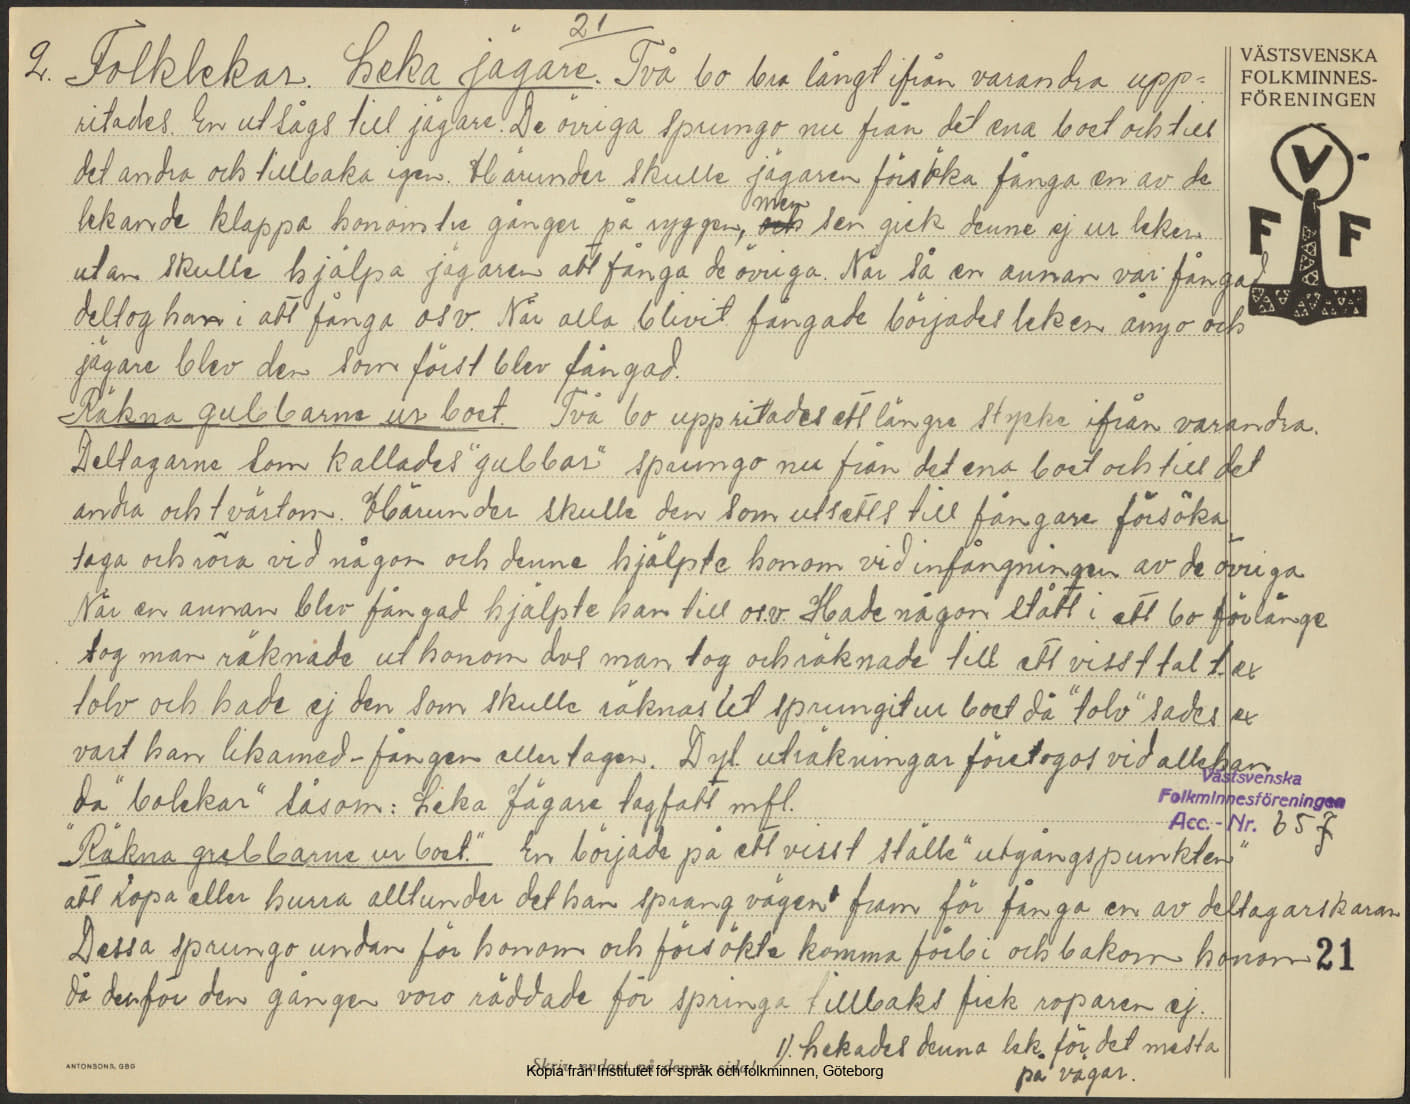 21
2. Folklekar. Leka jägare. Två bo bra långt ifrån varandra upp=
ritades. En utsågs till jägare. De övriga sprungo nu från det ena boet och till
det andra och tillbaka igen. Härunder skulle jägaren försöka fånga en av de
lekande klappa honom tre gånger på ryggen, och men sen gick denne ej ur leken
utan skulle hjälpa jägaren att fånga de övriga. När så en annan var fångad
deltog han i att fånga osv. När alla blivit fångade börjades leken ånyo och
jägare blev den som först blev fångad.
Räkna gubbarne ur boet. Två bo uppritades ett längre stycke ifrån varandra.
Deltagarne som kallades "gubbar" sprungo nu från det ena boet och till det
andra och tvärtom. Härunder skulle den som utsetts till fångare försöka
taga och röra vid någon och denne hjälpte honom vid infångningen av de övriga
När en annan blev fångad hjälpte han till osv. Hade någon stått i ett bo för länge
tog man räknade ut honom dvs man tog och räknade till ett visst tal t. ex
tolv och hade ej den som skulle räknas ut sprungit ur boet då "tolv" sades ex
vart han likamed - fången eller tagen. Dyl. uträkningar företogos vid allehan
da "bolekar" såsom: Leka Jägare tagfatt mfl.
"Räkna grabbarne ur boet." En började på ett visst ställe "utgångspunkten"
att ropa eller hurra alltunder det han sprang vägen¹ fram för fånga en av deltagarskaran
Dessa sprungo undan för honom och försökte komma förbi och bakom honom
då de för den gången voro räddade för springa tillbaks fick roparen ej.
1). Lekades denna lek för det mesta
på vägar.
VÄSTSVENSKA
FOLKMINNES-
FÖRENINGEN
V
F F
Västsvenska
Folkminnesföreningen
Acc. - Nr. 657
21
ANTONSONS, GBG
Skriv endast på denna sida!
Kopia från Institutet för språk och folkminnen, Göteborg